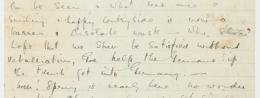 be seen - what was once a
smiling & happy countryside is now a
barren & desolate waste - Who
hope that we shall be satisfied without
retaliating. God help the Germans if
we get into Germany. -
Spring is nearly here no wonder